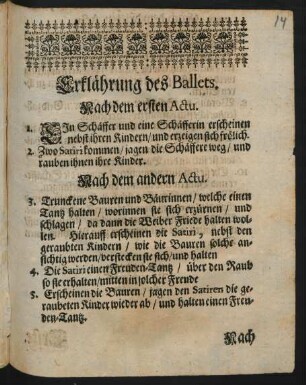 14
Erklährung des Ballets.
Nach dem ersten Actu.
1. EIn Schäffer und eine Schäfferin erscheinen
nebst ihren Kindern/ und erzeigen sich frölich.
2. Zwo Satiri kommen/ jagen die Schäffere weg/ und
rauben ihnen ihre Kinder.
Nach dem andern Actu.
3. Trunckene Bauren und Bäurinnen/ welche einen
Tantz halten/ worinnen sie sich erzürnen/ und
schlagen/ da dann die Weiber Friede halten wol-
len. Hierauff erscheinen die Satiri, nebst den
geraubten Kindern/ wie die Bauren solche an-
sichtig werden/ verstecken sie sich/ und halten
4. Die Satiri einen Freuden-Tantz/ über den Raub
so sie erhalten/ mitten in solcher Freude
5. Erscheinen die Bauren/ jagen den Satiren die ge-
raubeten Kinder wieder ab/ und halten einen Freu-
den-Tantz.
Nach